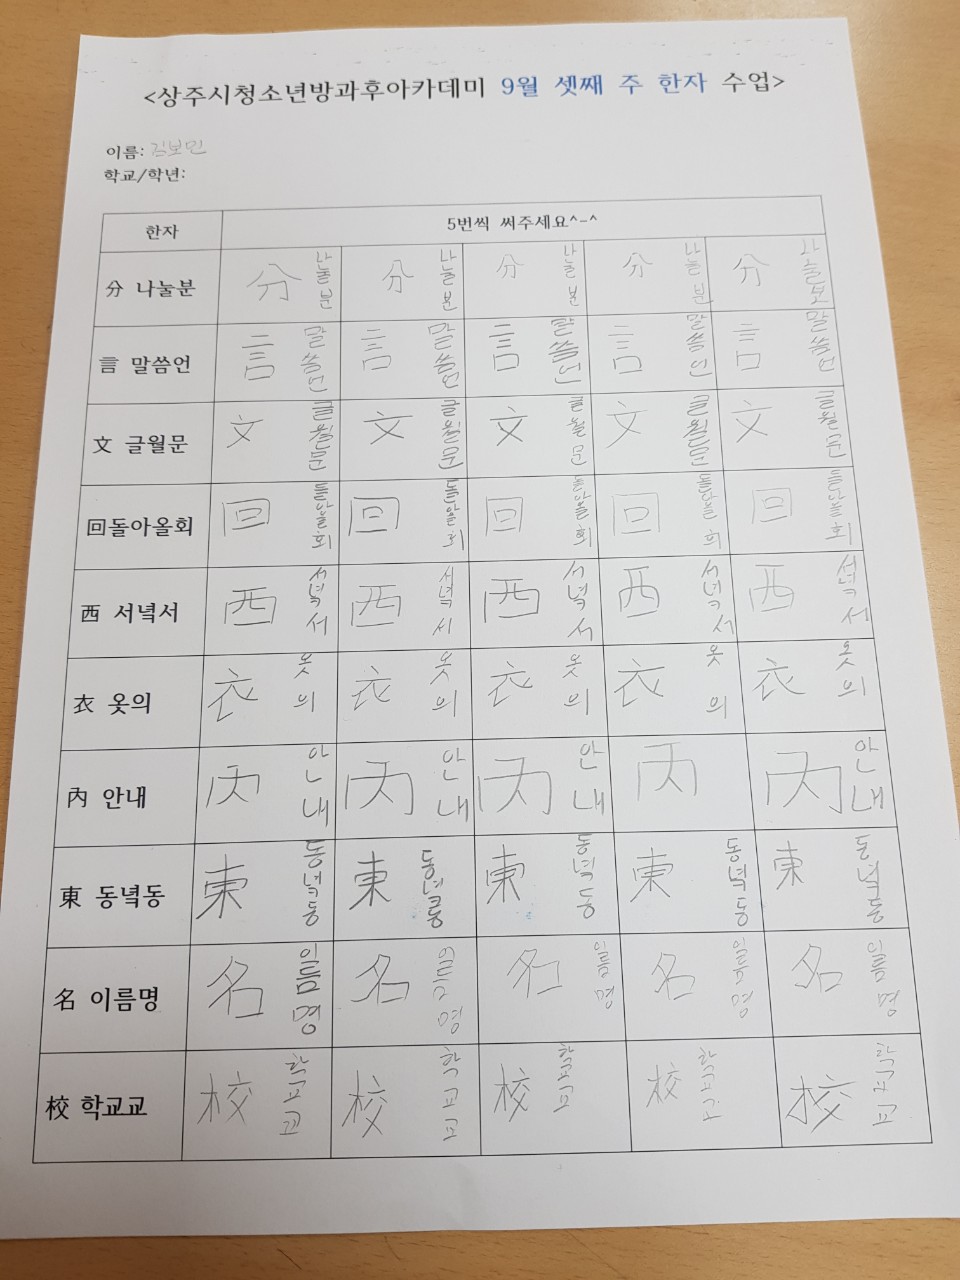 <상주시청소년방과후아카데미 9월 셋째 주 한자 수업>
이름: 김보민
학교/학년:
한자 5번씩 써주세요^-^
分 나눌분 分 나눌분 分 나눌분 分 나눌분 分 나눌분 分 나눌보
言 말씀언 言 말씀언 言 말씀언 言 말씀언 言 말씀언 言 말씀언
文 글월문 文 글월문 文 글월문 文 글월문 文 글월문 文 글월문
回돌아올회 回 돌아올회 回 돌아올회 回 돌아올회 回 돌아올회 回 돌아올회
西 서녘서 西 서녘서 西 서녘서 西 서녘서 西 서녘서 西 서녘서
衣 옷의 衣 옷의 衣 옷의 衣 옷의 衣 옷의 衣 옷의
內 안내 內 안내 內 안내 內 안내 內 內 안내
東 동녘동 東 동녘동 東 동녘동 東 동녘동 東 동녘동 東 동녘동
名 이름명 名 이름명 名 이름명 名 이름명 名 이름명 名 이름명
校 학교교 校 학교교 校 학교교 校 학교교 校 학교교 校 학교교